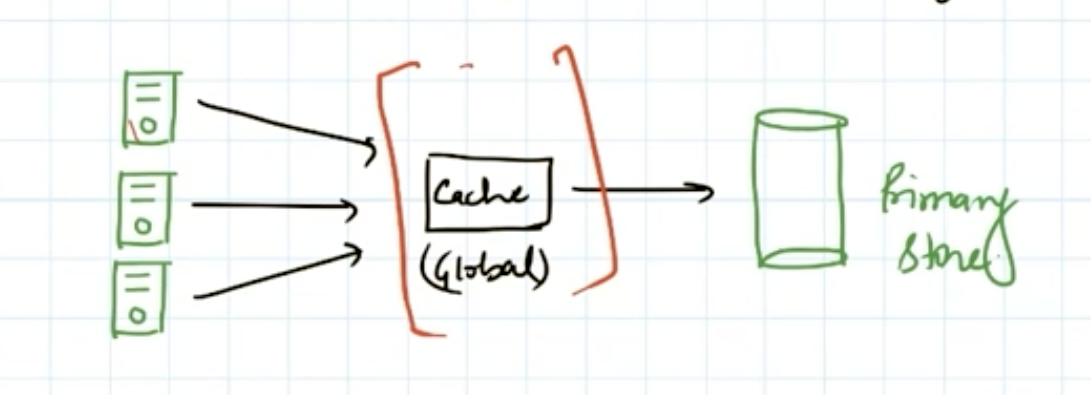 Cache
(Global)
Primary
Store